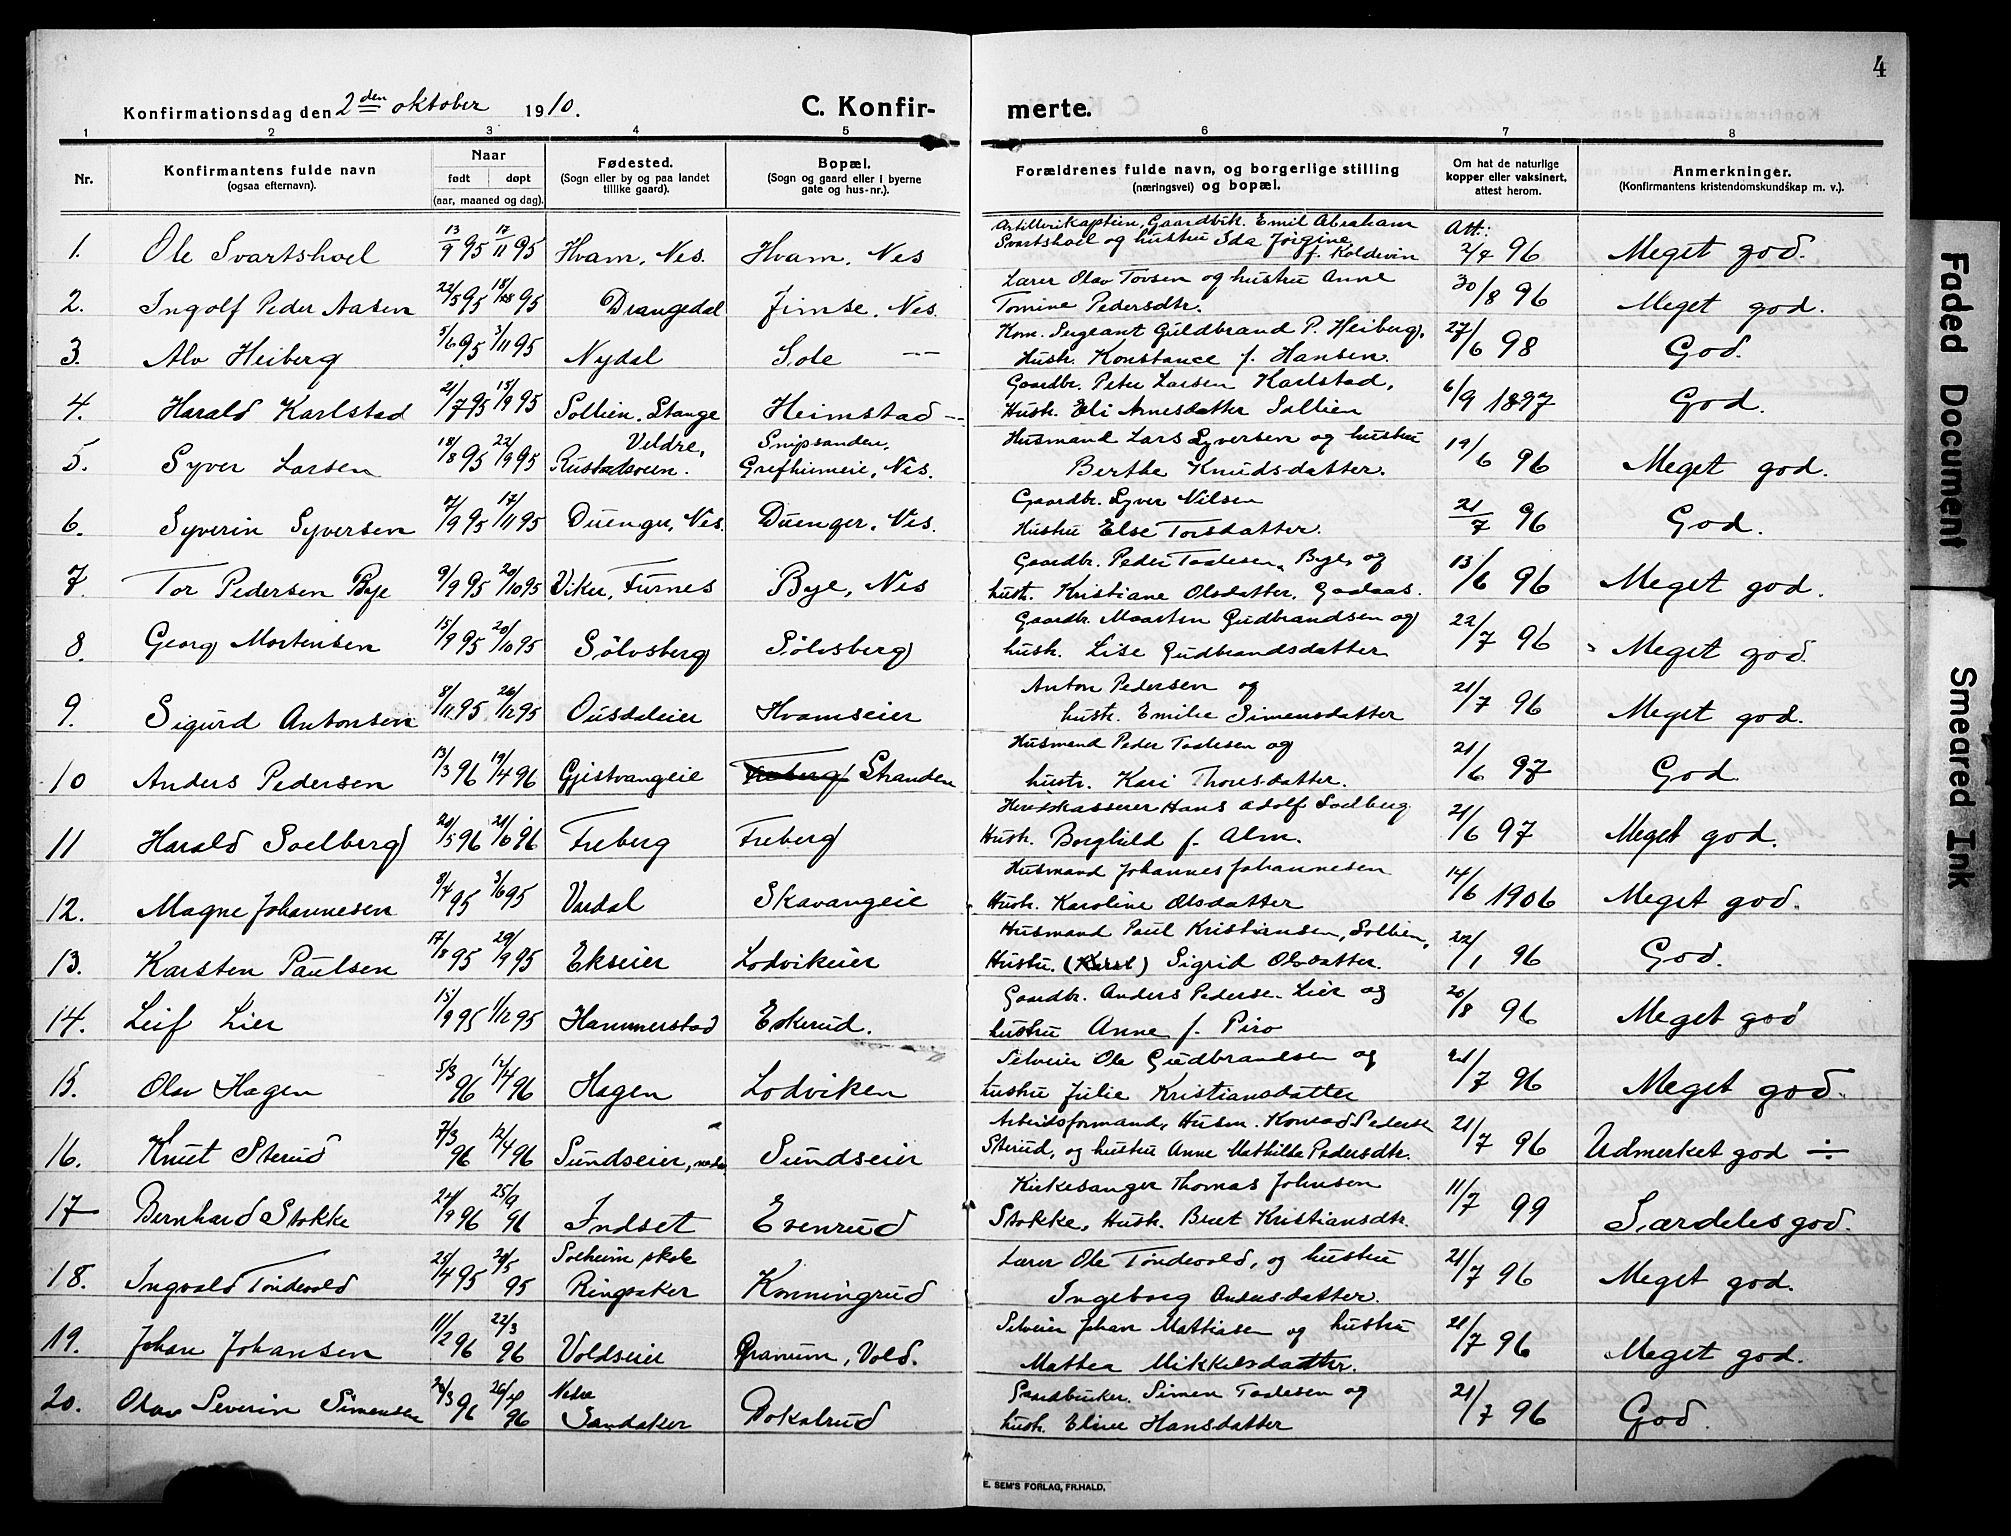 4
Konfirmationsdag den 2den oktober 1910. C. Konfirmerte.
1 2 3 4 5 6 7 8
Nr. Konfirmantens fulde navn (ogsaa efternavn). Naar født døpt (aar, maaned og dag). Fødested. (Sogn eller by og paa landet tillike gaard). Bopæl. (Sogn og gaard eller i byerne gate og hus-nr.). Forældrenes fulde navn, og borgerlige stilling (næringsvei) og bopæl. Om hat de naturlige kopper eller vaksinert, attest herom. Anmerkninger. (Konfirmantens kristendomskundskap m. v.).
Artillerikaptein, Gaardbr. Emil Abraham Att:
1. Ole Svartshoel 13/9 95 17/11 95 Hvam, Nes. Hvam, Nes Svartshoel og hustru Ida Jørgine f. Koldevin 2/7 96 Meget god.
Lærer Olav Tovsen og hustru Anne
2. Ingolf Peder Aasen 22/5 95 95 Drangedal Jimse, Nes. Tomine Pedersdtr. 30/8 96 Meget god.
Kom. Sergeant Guldbrand P. Heiberg,
3. Alv Heiberg 5/6 95 3/11 95 Nydal Sole -- Hustr. Konstance f. Hansen. 27/6 98 God.
Gaardbr. Peter Larsen Karlstad,
4. Harald Karlstad 21/7 95 15/9 95 Sollien, Stange Heimstad -- Hustr. Eli Arnesdatter Sollien 6/9 1897 God.
Veldre, Snipsanden, Husmand Lars Syversen og hustru
5. Syver Larsen 18/8 95 22/9 95 Rustadsveen. Grefhuseie, Nes. Berthe Knudsdatter. 19/6 96 Meget god.
Gaardbr. Syver Nilsen
6. Syverin Syversen 7/9 95 17/11 95 Duenger, Nes. Duenger, Nes. Hustru Else Torsdatter. 21/7 96 God.
Gaardbr. Peder Taalesen, Bye, og
7. Tor Pedersen Bye 9/9 95 20/10 95 Viker, Furnes Bye, Nes hustr. Kristiane Olsdatter, Gadaas. 13/6 96 Meget god.
Gaardbr. Maarten Gudbrandsen og
8. Georg Mortensen 15/9 95 20/10 95 Sølvsberg Sølvsberg hustr. Lise Gudbrandsdatter 22/7 96 Meget god.
Anton Pedersen og
9. Sigurd Antonsen 8/11 95 26/12 95 Ousdaleier Hvamseier hustr. Emilie Simensdatter 21/7 96 Meget god.
Husmand Peder Taalesen og
10 Anders Pedersen 13/3 96 19/4 96 Gjestvangeie Freberg Stranden hustr. Kari Thoresdatter. 21/6 97 God
Herredskasserer Hans Adolf Soelberg
11 Harald Soelberg 20/5 96 96 Freberg Freberg Hustr. Borghild f. Alm. 21/6 97 Meget god.
Husmand Johannes Johannesen
12. Magne Johannesen 8/4 95 3/6 95 Vardal Skavangeie Hustr. Karoline Olsdatter 14/6 1906 Meget god.
Husmand Paul Kristiansen, Sollien,
13. Karsten Paulsen 17/8 95 29/9 95 Ekseier Lodvikeier Hustru. (Karl) Sigrid Olsdatter. 22/1 96 God.
Gaardbr. Anders Pederse. Lier og
14. Leif Lier 15/9 95 1/12 95 Hammerstad Eskerud. hustru Anne f. Piro 20/8 96 Meget god
Selveier Ole Gudbrandsen og
15. Olav Hagen 5/3 96 12/4 96 Hagen Lodviken hustru Julie Kristiansdatter 21/7 96 Meget god.
Arbeidsformand, Husm. Konrad Pederse
16. Knut Sterud 7/3 96 12/4 96 Sundseier, nedre Sundseier Sterud, og hustru Anne Mathilde Pedersdtr. 21/7 96 Udmerket god ÷
Kirkesanger Thomas Johnsen
17 Bernhard Stokke 96 96 Indset Evenrud Stokke, Hustr. Brut Kristiansdtr. 11/7 99 Særdeles god.
Solheim skole Lærer Ole Tøndevold, og hustru
18. Ingvald Tøndevold 25/4 95 95 Ringsaker Konningrud Ingeborg Andersdatter. 21/7 96 Meget god.
Selveier Johan Mathiasen og hustru
19. Johan Johansen 11/2 96 22/3 96 Voldseier Granum, Vold. Mathea Mikkelsdatter. 21/7 96 Meget god.
Nedre Gaardbruker. Simen Taalesen og
20. Olav Severin Simensen 96 26/4 96 Sandaker Doksrud hustr. Eline Hansdatter 21/7 96 God.
E. SEM'S FORLAG, FR.HALD.
Faded Document
Smeared Ink